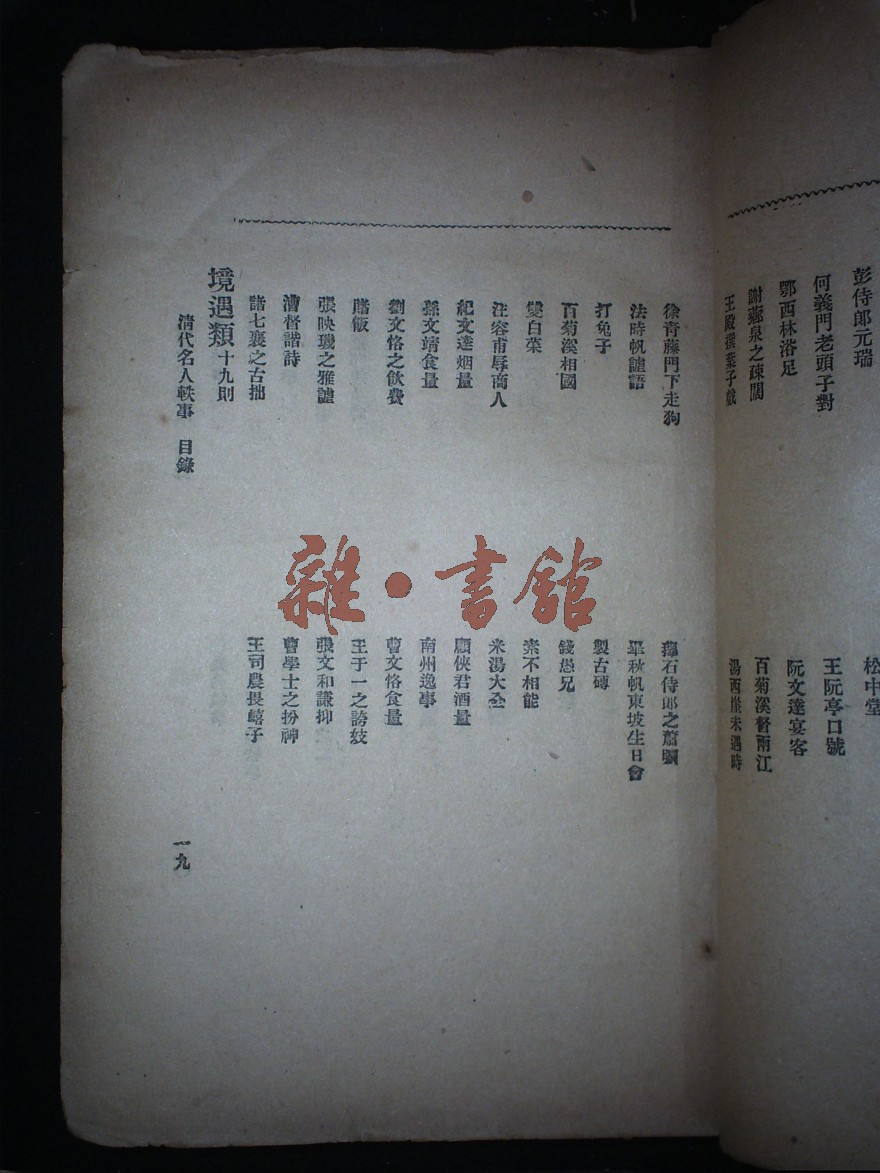 彭侍郎元瑞
松中堂
何義門老頭子對
王阮亭口號
鄂西林浴足
阮文達宴客
謝薌泉之疎闊
百菊溪督兩江
王殿撰葉子戲
湯西崖未遇時
徐青藤門下走狗
蘀石侍郎之蕭曠
法時帆謔語
畢秋帆東坡生日會
打兔子
製古磚
百菊溪相國
錢愚兄
雙白菜
素不相能
汪容甫辱商人
米湯大全
紀文達烟量
顧俠君酒量
孫文靖食量
南州逸事
劉文恪之飲費
曹文恪食量
賭飯
王于一之誇妓
張映璣之雅謔
張文和謙抑
漕督諧詩
曹學士之扮神
諸七襄之古拙
王司農畏蟢子
境遇類 十九則
清代名人軼事 目錄
一九
雜·書館